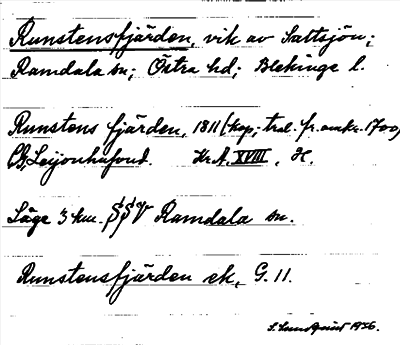 Runstensfjärden, vik av Saltsjön;
Ramdala sn; Östra hd; Blekinge l.
Runstens fjärden, 1811 (kop; trol. fr. omkr. 1700)
Leijonhufvud. Kr. A. XVIII, H.
Läge 3 km. SSV Ramdala sn.
Runstensfjärden ek, G. 11.
1956.